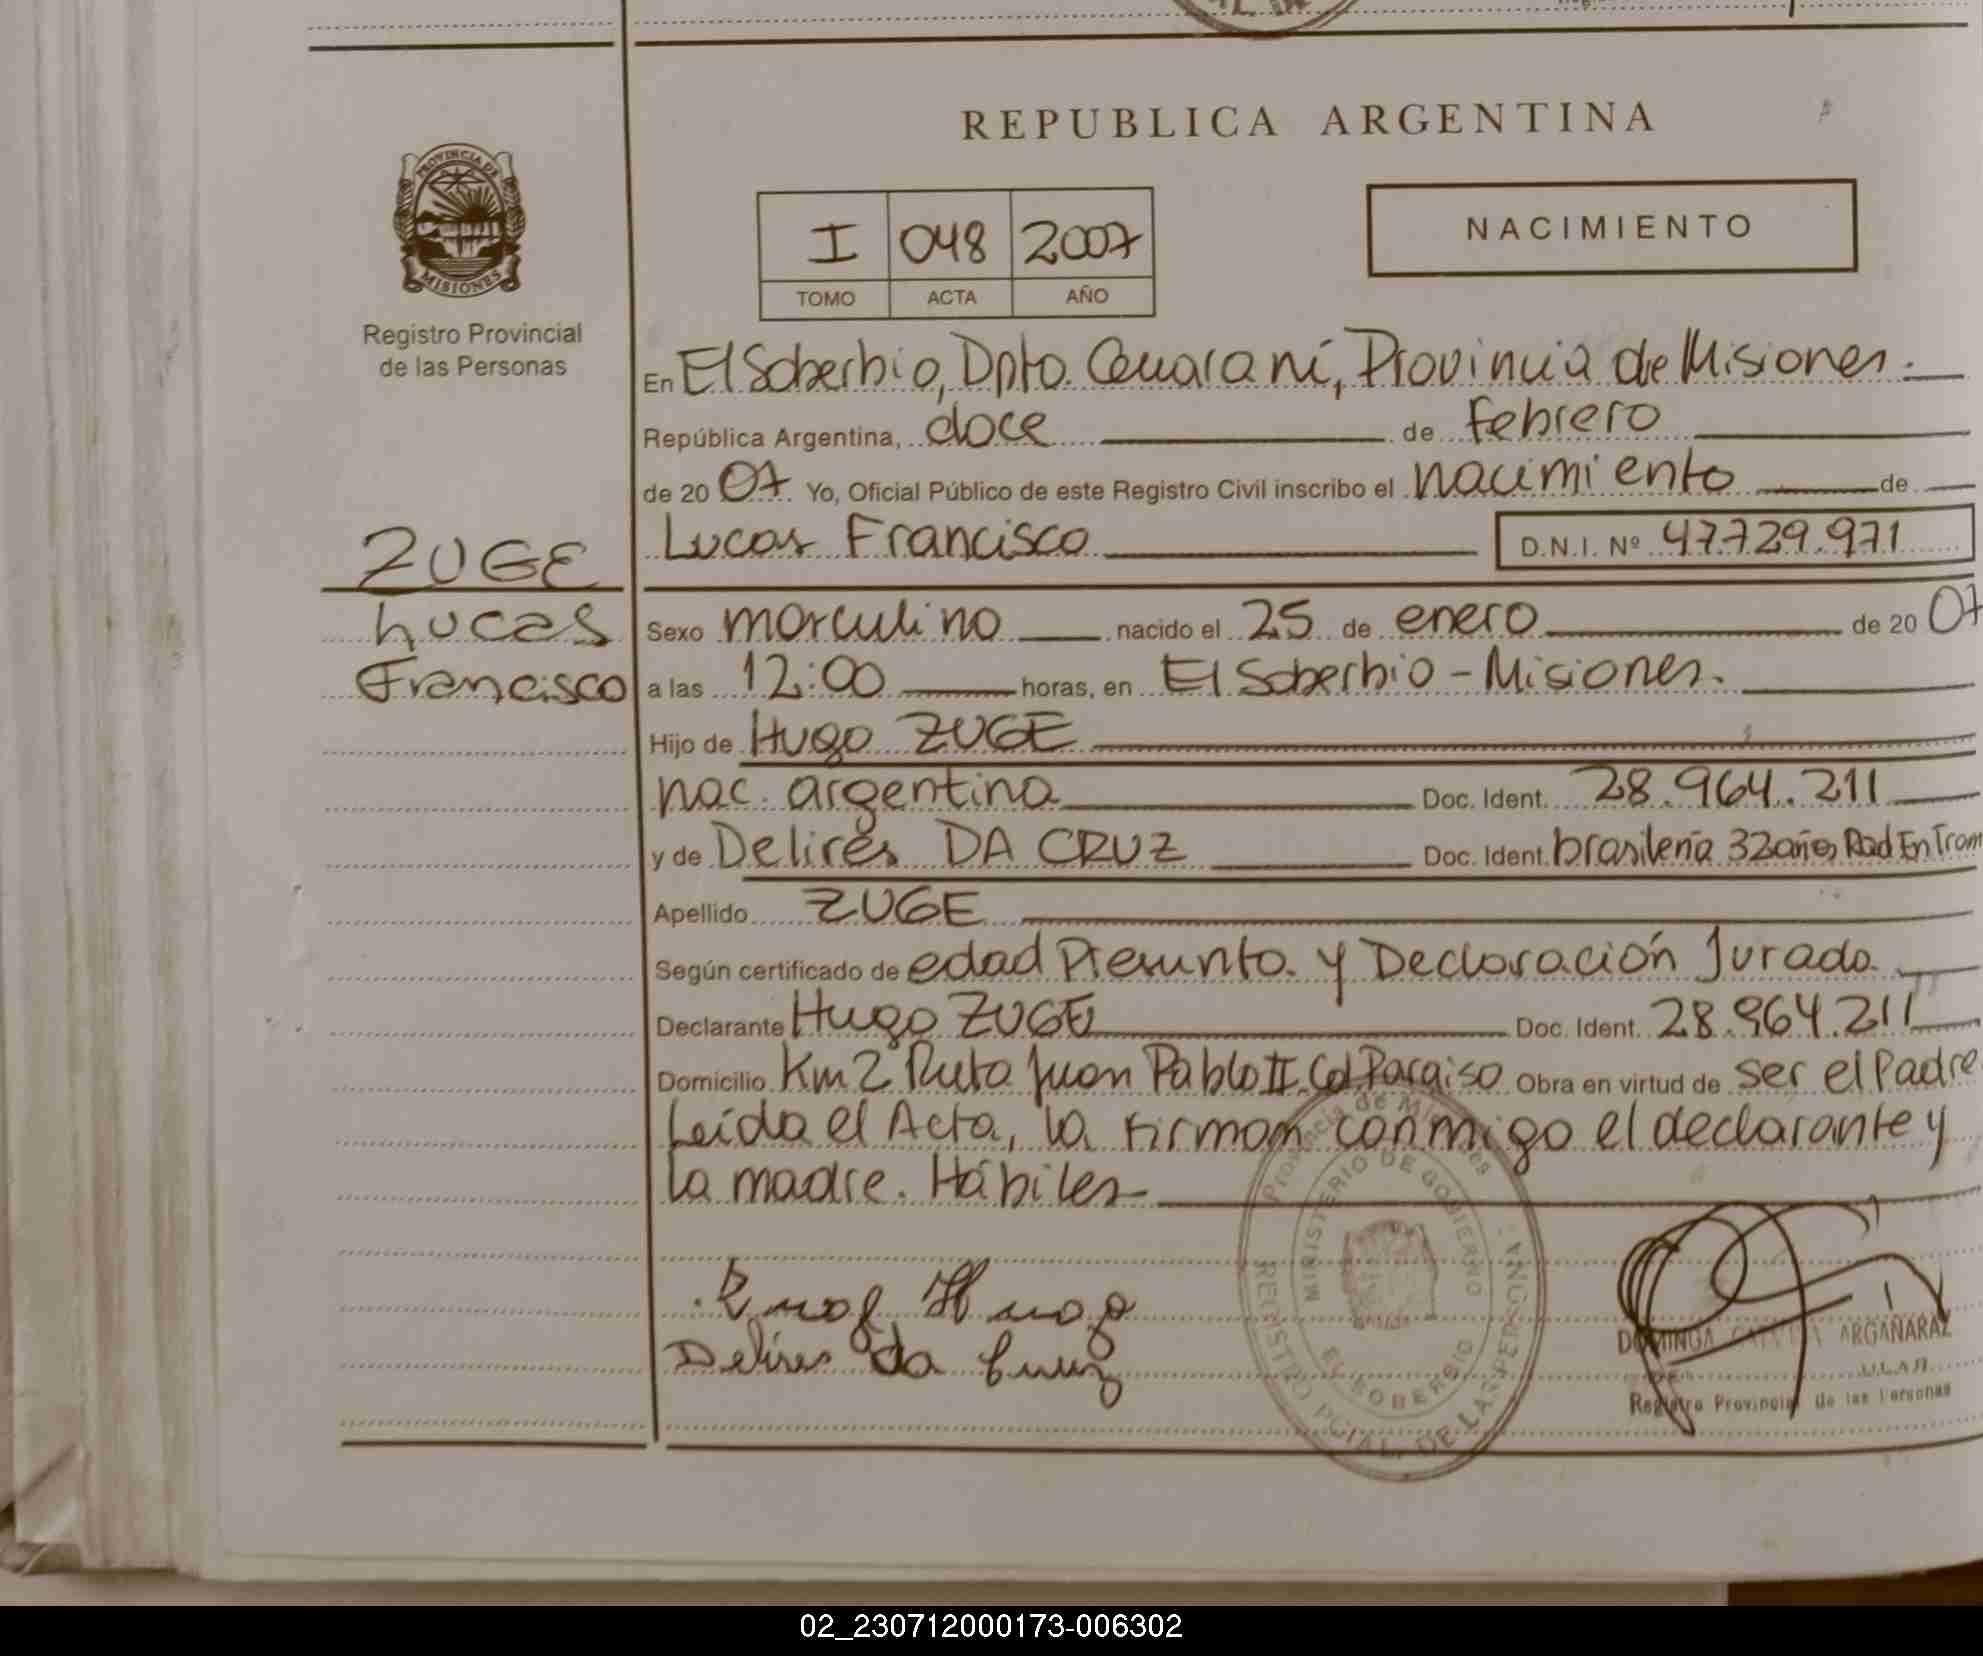 REPUBLICA ARGENTINA
PROVINCIA DE
MISIONES
Registro Provincial
de las Personas
I 048 2007
TOMO ACTA AÑO
NACIMIENTO
En El Soberbio, Dpto. Guaraní, Provincia de Misiones.
República Argentina, doce de febrero
de 20 07 Yo, Oficial Público de este Registro Civil inscribo el nacimiento de
Lucas Francisco D.N.I. Nº 47.729.971
ZUGE
Lucas
Francisco
Sexo masculino nacido el 25 de enero de 20 07
a las 12:00 horas, en El Soberbio - Misiones.
Hijo de Hugo ZUGE
nac. argentina Doc. Ident. 28.964.211
y de Delires DA CRUZ Doc. Ident. brasileña 32 años Rad En Tram
Apellido ZUGE
Según certificado de edad Presunta y Declaración Jurada
Declarante Hugo ZUGE Doc. Ident. 28.964.211
Domicilio Km 2 Ruta Juan Pablo II Col. Paraiso Obra en virtud de ser el Padre
Leída el Acta, la firman conmigo el declarante y
la madre. Hábiles
Hugo
Delires da Cruz
Provincia de Misiones
MINISTERIO DE GOBIERNO
EL SOBERBIO
REGISTRO PCIAL. DE LAS PERSONAS
DOMINGA ARGAÑARAZ
Registro Provincial de las Personas
02_230712000173-006302